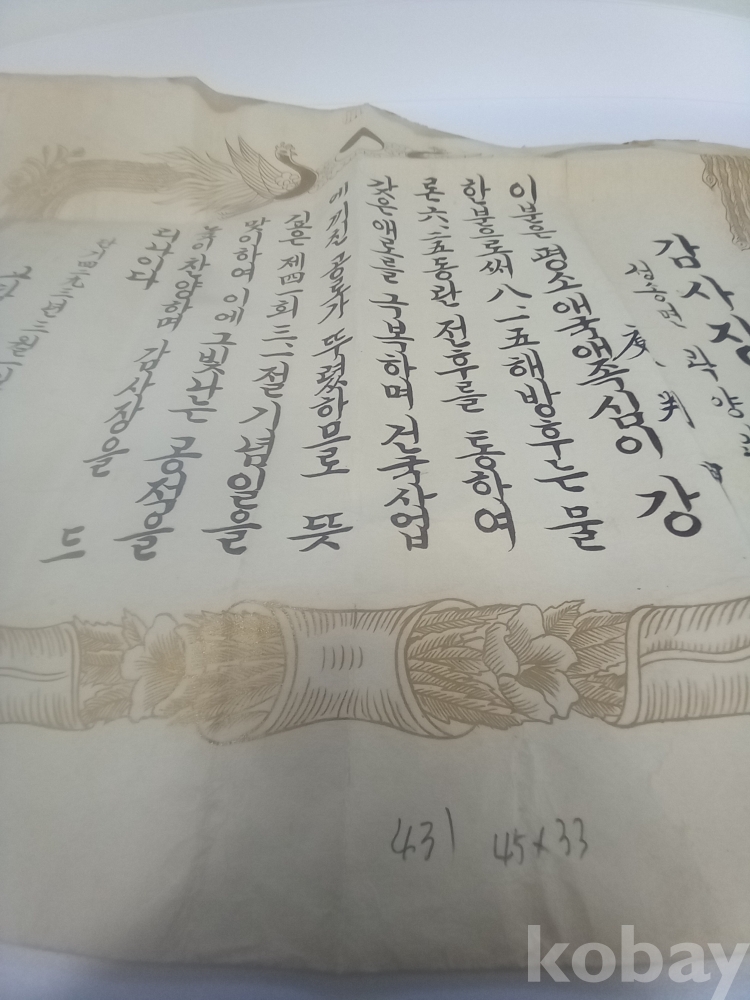 감사장
성동면 곽양
皮 判
이분은 평소애국애족심이 강
한분으로써 八·一五해방후는 물
론 六·二五동란 전후를 통하여
갖은애로를 극복하며 건국사업
에 끼친 공로가 뚜렸하므로 뜻
깊은 제四회 三·一절 기념일을
맞이하여 이에 그빛나는 공적을
높이찬양하며 감사장을 드
리나이다
431 45x33
kobay